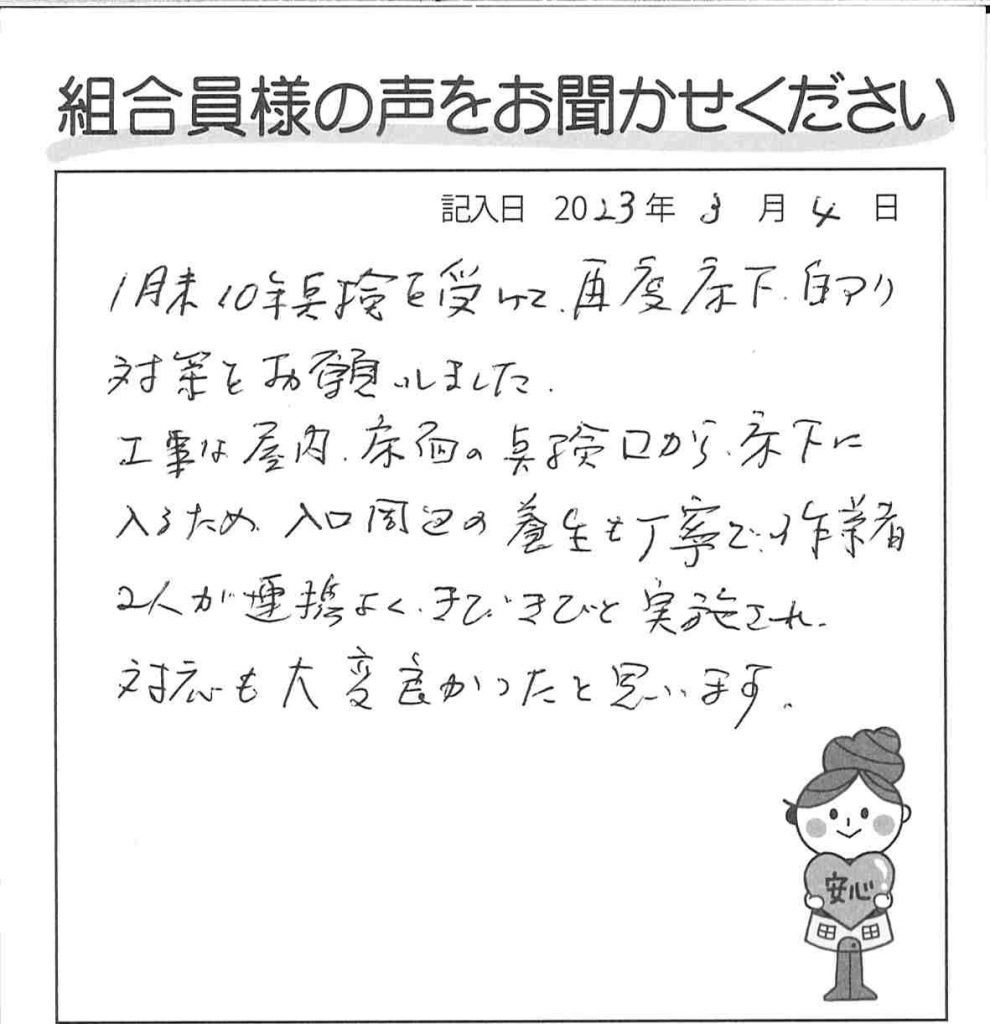 組合員様の声をお聞かせください
記入日 2023年 3月 4日
1月末10年点検を受けて、再度床下、白アリ
対策をお願いしました。
工事は屋内、床面の点検口から、床下に
入るため、入口周辺の養生も丁寧で、作業者
2人が連携よく、きびきびと実施され、
対応も大変良かったと思います。
安心